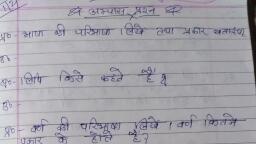 अभ्यास प्रश्न
प्र०- भाषा की परिभाषा लिखें तथा प्रकार बताइए
उ०-
प्र०- लिपि किसे कहते हैं ?
उ०-
प्र०- वर्ण की परिभाषा लिखें । वर्ण कितने
प्रकार के होते हैं ?